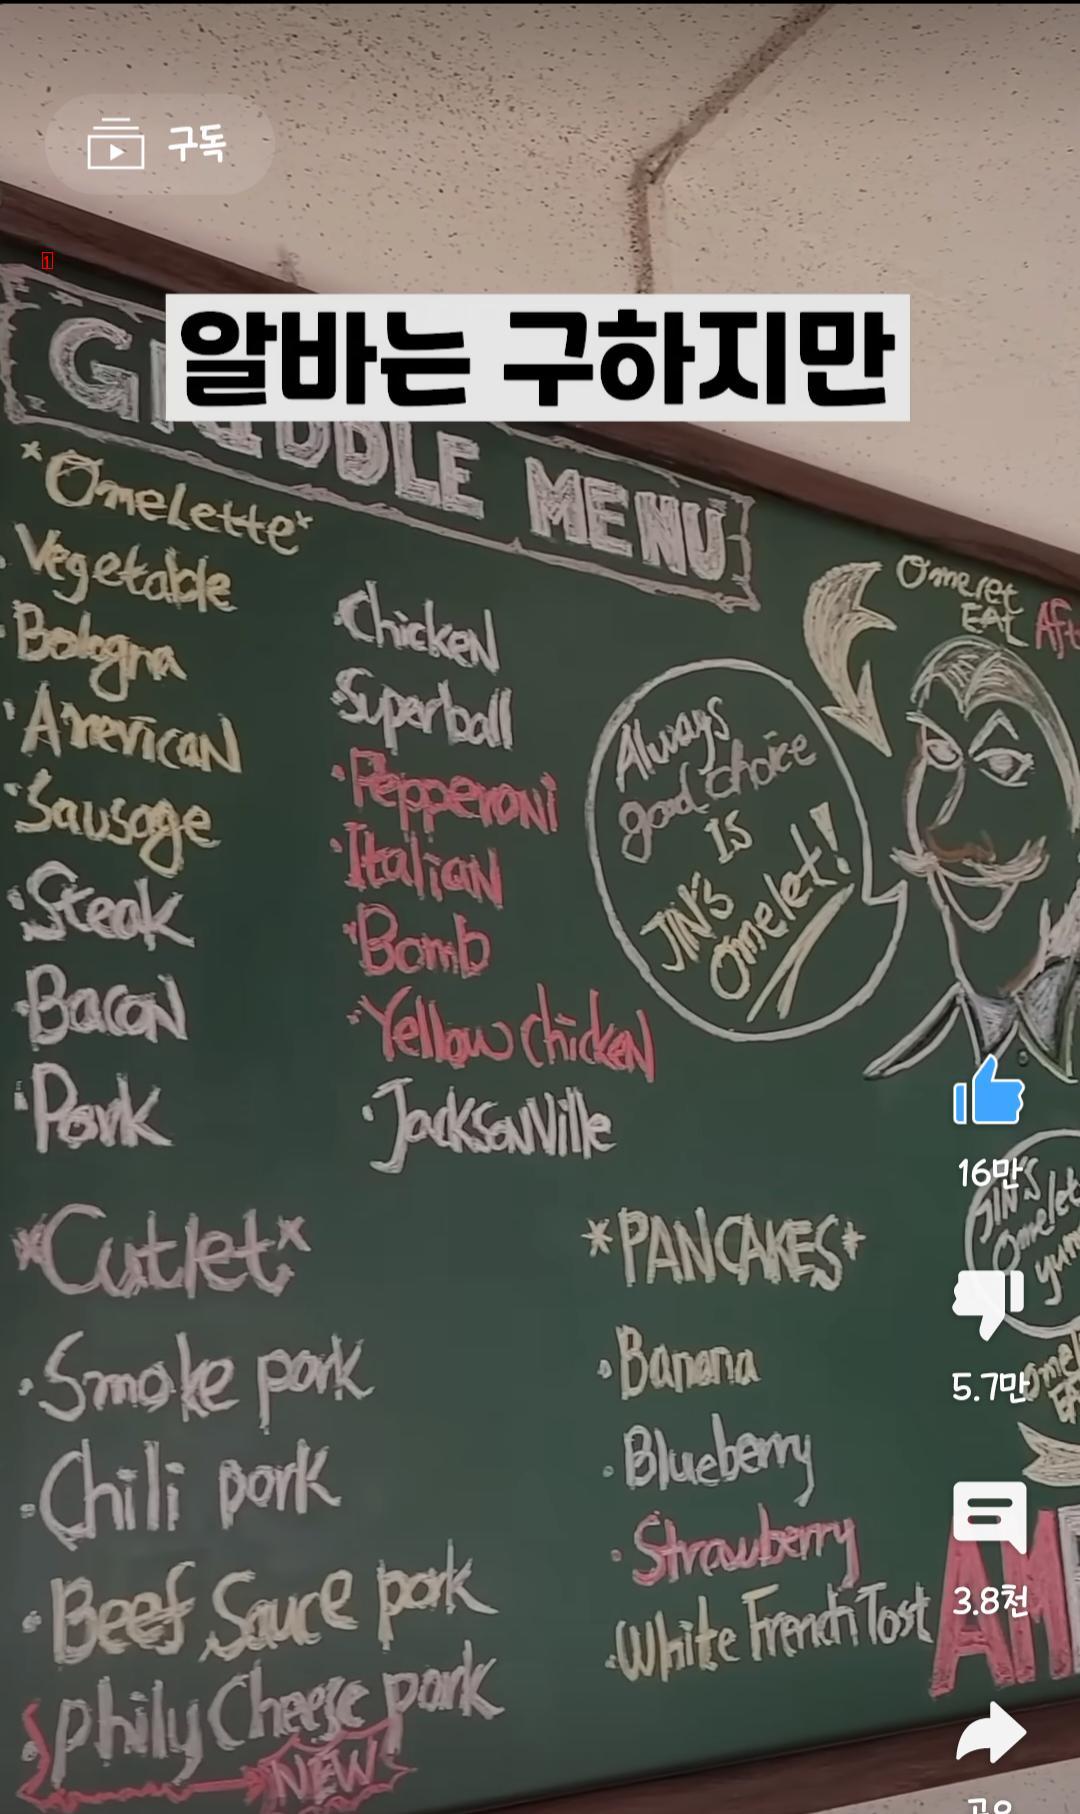 구독
1
알바는 구하지만
GRIDDLE MENU
*Omelette*
Vegetable
Bologna
American
Sausage
Steak
Bacon
Pork
Chicken
Superball
Pepperoni
Italian
Bomb
Yellow chicken
Jacksonville
Omelet
EAt
Always
good choice
IS
JIN'S
omelet!
*Cutlet*
Smoke pork
Chili pork
Beef Sauce pork
Phily Cheese pork
NEW
*PANCAKES*
Banana
Blueberry
Strawberry
White French Tost
16만
JIN'S
5.7만
3.8천